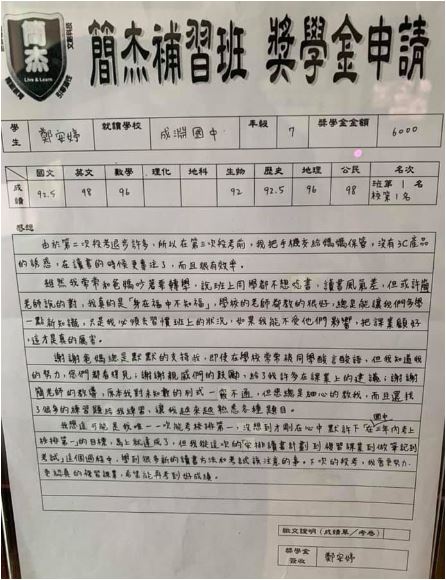 簡杰
Live & Learn
簡杰補習班 獎學金申請
學生 鄭安婷 就讀學校 成淵國中 年級 7 獎學金金額 6000
國文 英文 數學 理化 地科 生物 歷史 地理 公民 名次
成績 92.5 98 96 92 92.5 96 98 班第 1 名
校第 1 名
感想
由於第二次校考退步許多,所以在第三次校考前,我把手機交給媽媽保管,沒有3C產品
的誘惑,在讀書的時候更專注了,而且很有效率。
雖然我常常和爸媽吵著要轉學,說班上同學都不想唸書,讀書風氣差,但或許簡
老師說的對,我真的是「身在福中不知福」,學校的老師都教的很好,總是能讓我們多學
一點新知識,只是我必須去習慣班上的狀況,如果我能不受他們影響,把課業顧好,
這才是真的厲害。
謝謝爸媽總是默默的支持我,即使在學校常常被同學酸言酸語,但我知道我
的努力,您們都看得見;謝謝親戚們的鼓勵,給了我許多在課業上的建議;謝謝
簡老師的教導,原本我對未知數的列式一竅不通,但您總是細心的教我,而且還找
了個多的練習題給我練習,讓我越來越熟悉各種題目。
我想這可能是我唯一一次能考校排第一,沒想到才剛在心中默許下「在國中三年內考上
校排第一」的目標,馬上就達成了,但我從這次的「安排讀書計劃到複習課業到做筆記到
考試」這個過程中,學到很多新的讀書方法和考試該注意的事。下次的校考,我會更努力、
更認真的複習課業,希望能再考到好成績。
繳交證明(成績單/考卷)
獎學金簽收 鄭安婷